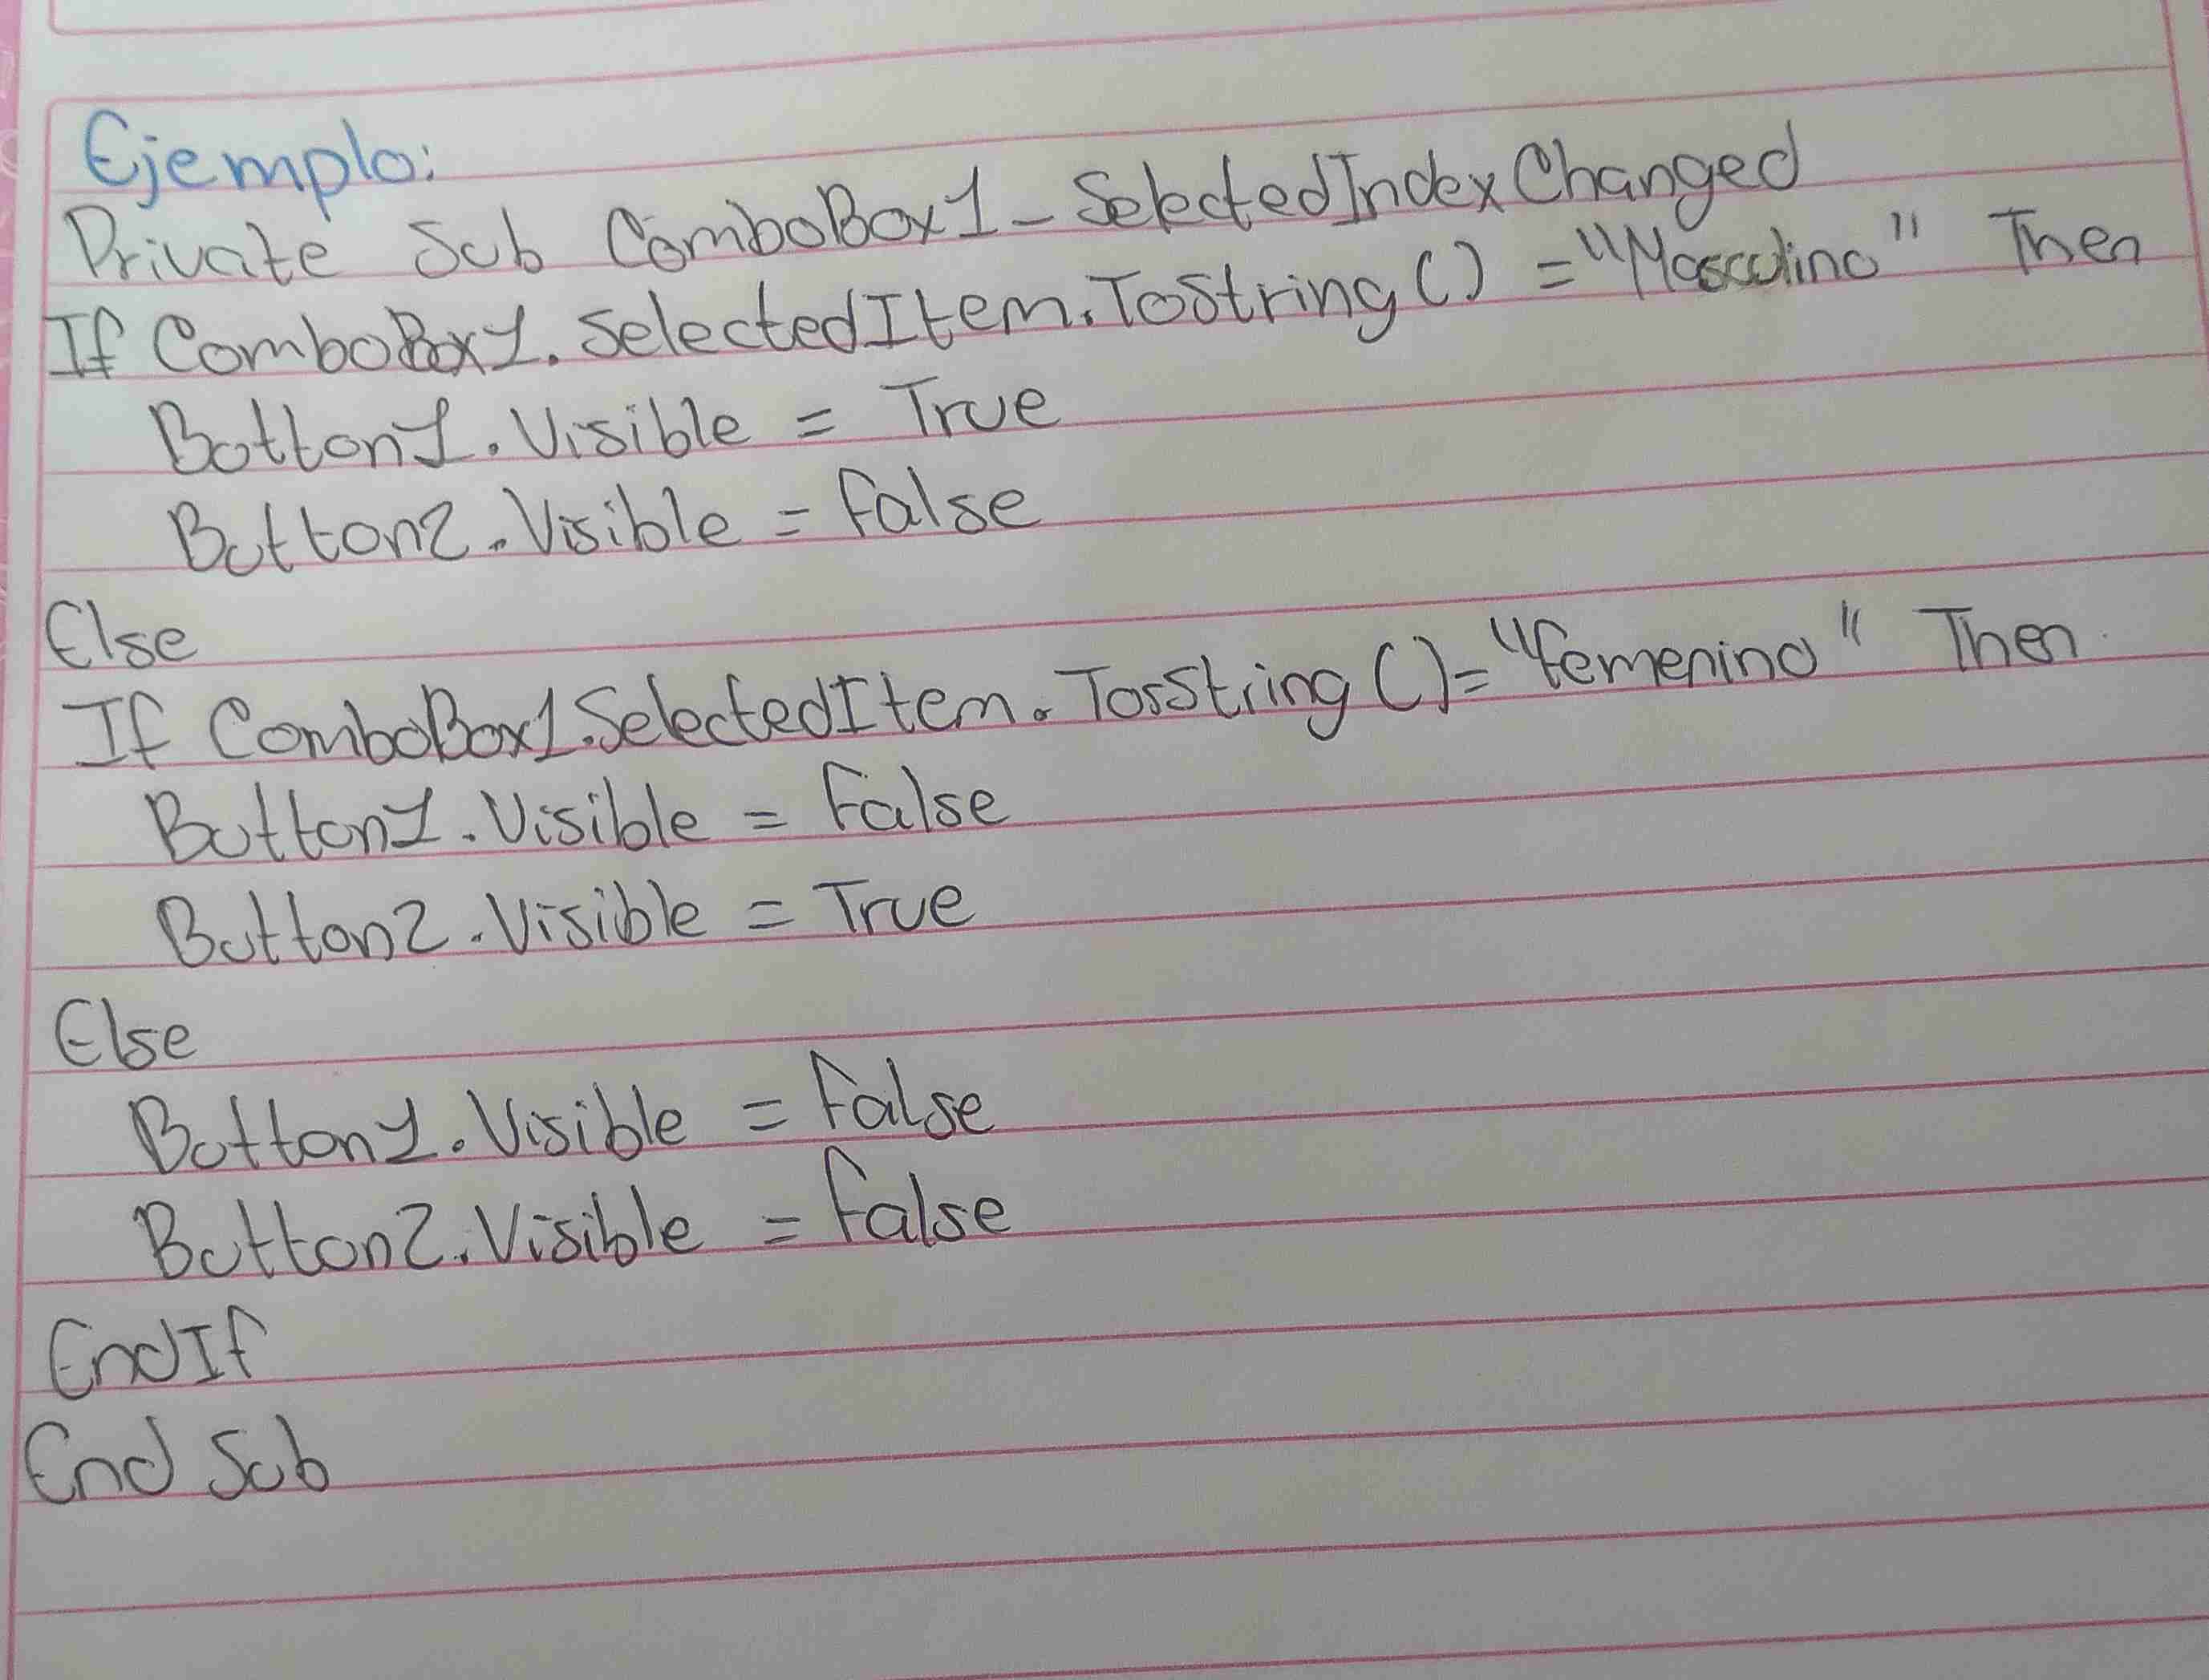 Ejemplo:
Private Sub ComboBox1_SelectedIndexChanged
If ComboBox1.SelectedItem.ToString() = "Masculino" Then
Botton1.Visible = True
Button2.Visible = False
Else
If ComboBox1.SelectedItem.TosString() = "Femenino" Then
Button1.Visible = False
Button2.Visible = True
Else
Button1.Visible = False
Button2.Visible = False
EndIf
End Sub